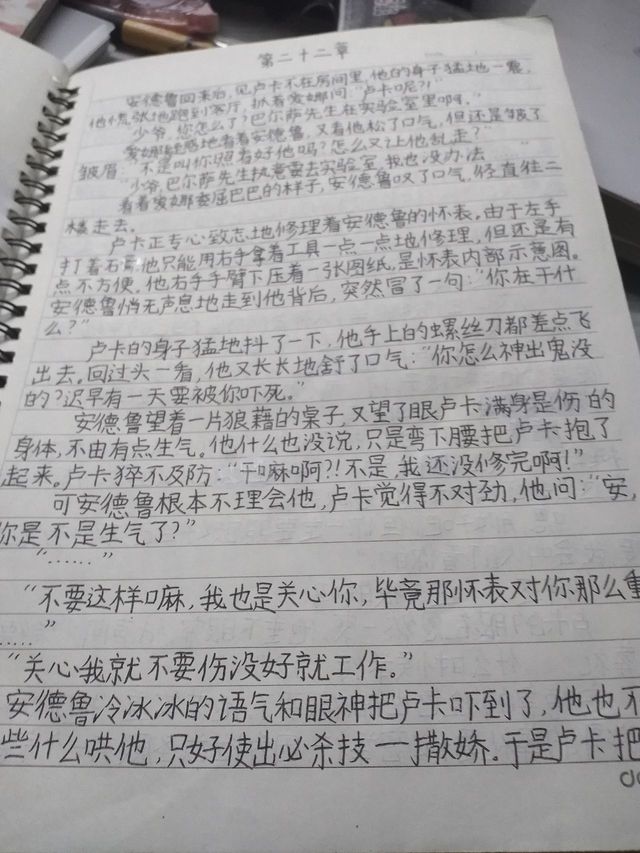 第二十二章
安德鲁回来后,见卢卡不在房间里,他的身子猛地一震,
他慌张地跑到客厅,抓着爱娜问:“卢卡呢?!”
“少爷,你怎么了?巴尔萨先生在实验室里啊。”
爱娜疑惑地看着安德鲁,又看他松了口气,但还是皱了
皱眉:“不是叫你照看好他吗?怎么又让他乱走?”
“少爷,巴尔萨先生执意要去实验室,我也没办法……”
看着爱娜委屈巴巴的样子,安德鲁叹了口气,径直往二
楼走去。
卢卡正专心致志地修理着安德鲁的怀表。由于左手
打着石膏,他只能用右手拿着工具一点一点地修理,但还是有
点不方便。他右手手臂下压着一张图纸,是怀表内部示意图。
安德鲁悄无声息地走到他背后,突然冒了一句:“你在干什
么?”
卢卡的身子猛地抖了一下,他手上的螺丝刀都差点飞
出去。回过头一看,他又长长地舒了口气:“你怎么神出鬼没
的?迟早有一天要被你吓死。”
安德鲁望着一片狼藉的桌子,又望了眼卢卡满身是伤的
身体,不由有点生气。他什么也没说,只是弯下腰把卢卡抱了
起来。卢卡猝不及防:“干嘛啊?!不是,我还没修完啊!”
可安德鲁根本不理会他,卢卡觉得不对劲,他问:“安,
你是不是生气了?”
“……”
“不要这样嘛,我也是关心你,毕竟那怀表对你那么重
……”
“关心我就不要伤没好就工作。”
安德鲁冷冰冰的语气和眼神把卢卡吓到了,他也不
些什么哄他,只好使出必杀技——撒娇。于是卢卡把